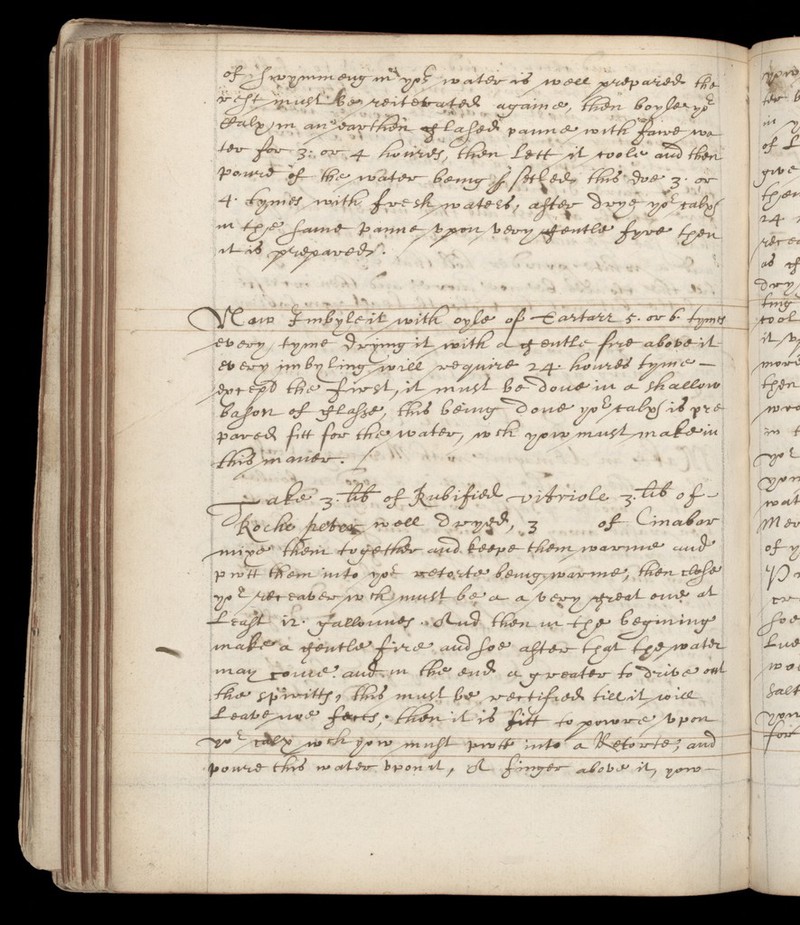 of swymmeng in yor water is well prepared the
rest must be reiterated againe, then boyle yor
Calx in an earthen glased panne with faire wa
ter for 3. or 4 houres, then lett it coole and then
poure of the water being setled, this doe 3. or
4. tymes with fresh waters, after drye yor calx
in the same panne vpon very gentle fyre then
it is prepared.
Now Imbyle it with oyle of Tartarr 5. or 6. tymes
every tyme drying it with a gentle fire above it
every imbyling will require 24 houres tyme –
except the first, it must be done in a shallow
bason of glasse, this being done yor calx is pre
pared fitt for the water, wch yow must make in
this maner.
Take 3. lib of Rubified vitriole 3. lib of –
Roche peter well dryed, 3 of Cinabor
mixe them together and keepe them warme and
putt them into yor retorte being warme, then close
yor receaver wch must be a a very great one at
Least 12. gallounes. And then in the begining
make a gentle fire and soe after that the water
may come. and in the end a greater to drive out
the spiritts, this must be rectified till it will
Leave noe feces, then it is fitt to powre vpon
yor calx wch yow must putt into a Retorte, and
poure this water vpon it, A finger above it, yow